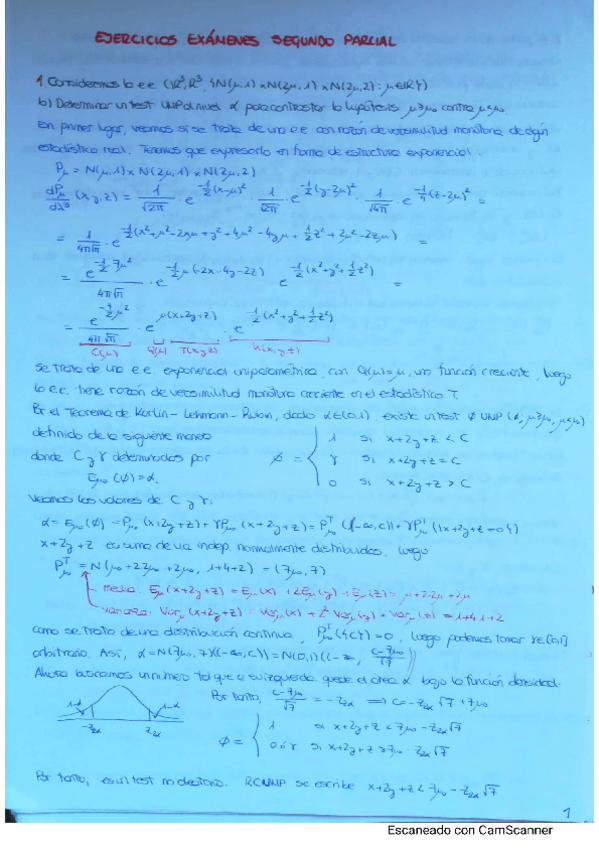 EJERCICIOS EXÁMENES SEGUNDO PARCIAL
1. Consideremos la e.e. (ℝ³, ℬ³, {N(μ,1) × N(2μ,1) × N(2μ,2) : μ∈ℝ})
b) Determinar un test UMP al nivel α para contrastar la hipótesis μ≥μ₀ contra μ<μ₀
En primer lugar, veamos si se trata de una e.e con razón de verosimilitud monótona de algún
estadístico real. Tenemos que expresarlo en forma de estructura exponencial:
Pμ = N(μ,1) × N(2μ,1) × N(2μ,2)
dPμ/dλ³ (x,y,z) = 1/√2π · e^(-1/2(x-μ)²) · 1/√2π · e^(-1/2(y-2μ)²) · 1/√4π · e^(-1/4(z-2μ)²) =
= 1/4π√π · e^(-1/2(x²+μ²-2xμ+y²+4μ²-4yμ+1/2z²+2μ²-2zμ)) =
= e^(-1/2 7μ²)/4π√π · e^(-1/2μ(-2x-4y-2z)) · e^(-1/2(x²+y²+1/2z²)) =
= e^(-7/2μ²)/4π√π · e^(μ(x+2y+z)) · e^(-1/2(x²+y²+1/2z²))
C(μ) Q(μ) T(x,y,z) h(x,y,z)
Se trata de una e.e exponencial uniparamétrica, con Q(μ)=μ, una función creciente, luego
la e.e. tiene razón de verosimilitud monótona creciente en el estadístico T.
Por el Teorema de Karlin-Lehmann-Rubin, dado α∈(0,1), existe un test φ UMP (α, μ≥μ₀, μ<μ₀)
definido de la siguiente manera
donde C y γ determinados por
Eμ₀(φ)=α.
φ = { 1 si x+2y+z < C
γ si x+2y+z = C
0 si x+2y+z > C
Veamos los valores de C y γ:
α = Eμ₀(φ) = Pμ₀(x+2y+z) + γPμ₀(x+2y+z) = Pμ₀ᵀ((-∞,C)) + γPμ₀ᵀ({x+2y+z=C})
x+2y+z es suma de v.a indep. normalmente distribuidas, luego
Pμ₀ᵀ = N(μ₀+2·2μ₀+2μ₀, 1+4+2) = (7μ₀,7)
media: Eμ(x+2y+z) = Eμ(x)+2Eμ(y)+Eμ(z) = μ+2·2μ+2μ
varianza: Varμ₀(x+2y+z) = Varμ₀(x)+2²Varμ₀(y)+Varμ₀(z) = 1+4·1+2
como se trata de una distribución continua, Pμ₀ᵀ({C})=0, luego podemos tomar γ∈[0,1]
arbitrario. Así, α = N(7μ₀,7)((-∞,C)) = N(0,1)((-∞, C-7μ₀/√7))
Ahora buscamos un número tal que a su izquierda quede el área α bajo la función densidad.
Por tanto, C-7μ₀/√7 = -z2α ⟹ C = -z2α√7+7μ₀
-z2α z2α
φ = { 1 si x+2y+z < 7μ₀-z2α√7
0 ó γ si x+2y+z ≥ 7μ₀-z2α√7
Por tanto, es un test no aleatorio. RCUMP se escribe x+2y+z < 7μ₀-z2α√7
1
Escaneado con CamScanner